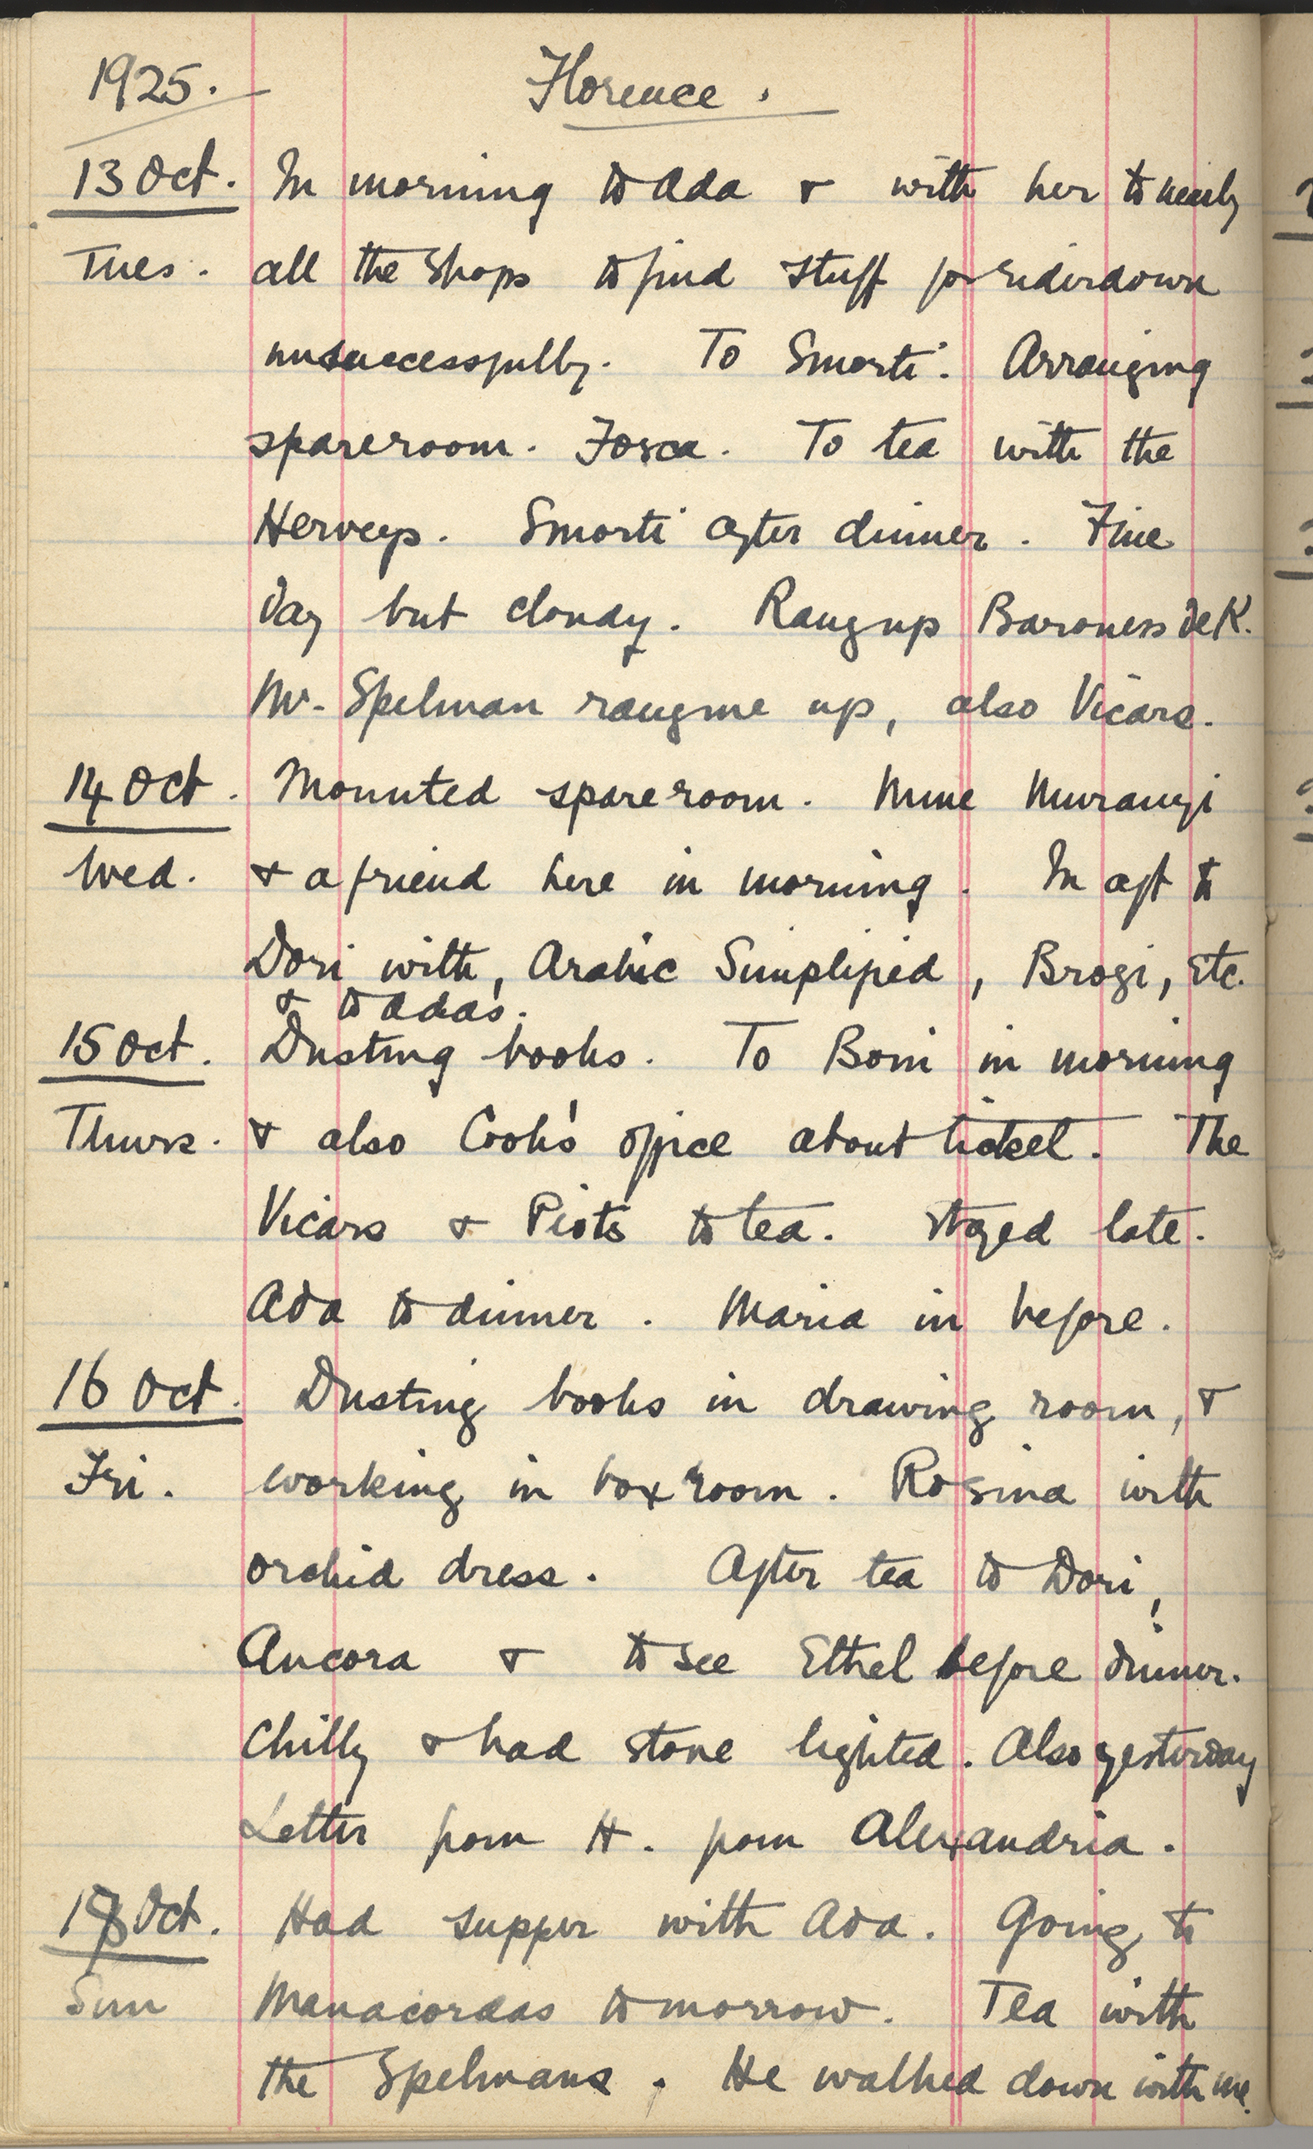 1925. Florence.
13 Oct. In morning to Ada & with her to nearly
Tues. all the shops to find stuff for eiderdown
unsuccessfully. To Smorti. Arranging
spareroom. Fosca. To tea with the
Herveys. Smorti after dinner. Fine
day but cloudy. Rang up Baroness de K.
Mr. Spelman rang me up, also Vicars.
14 Oct. Mounted spare room. Mme
Wed. & a friend here in morning. In aft to
Dori with, Arabic Simplified, Brogi, etc.
& to Ada's.
15 Oct. Dusting books. To Boni in morning
Thurs. & also Cook's office about ticket. The
Vicars & Piots to tea. Stayed late.
Ada to dinner. Maria in before.
16 Oct. Dusting books in drawing room, &
Fri. working in box room. Rosina with
orchid dress. After tea to Dori,
Ancora & to see Ethel before dinner.
Chilly & had stove lighted. Also yesterday
Letter from H. from Alexandria.
18 Oct. Had supper with Ada. Going to
Sun Manacordas tomorrow. Tea with
the Spelmans. He walked down with me.